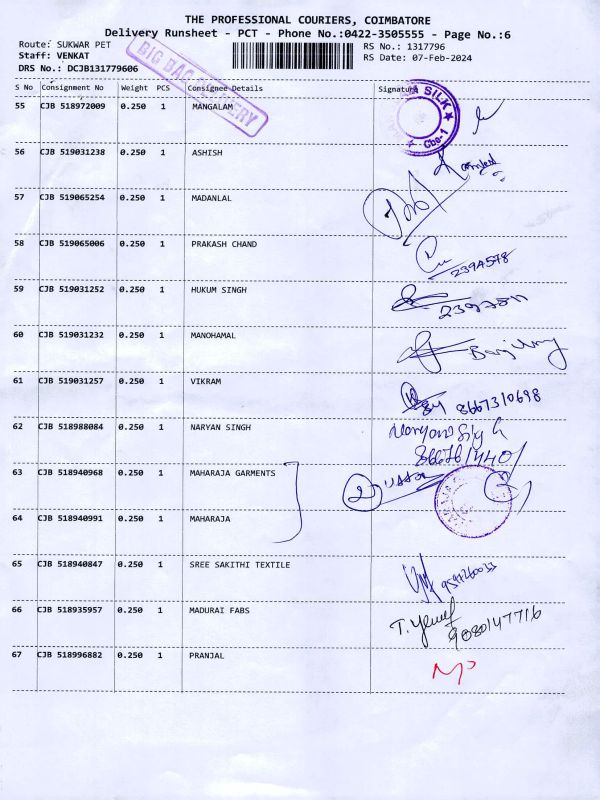 THE PROFESSIONAL COURIERS, COIMBATORE
Delivery Runsheet - PCT - Phone No.:0422-3505555 - Page No.:6
Route: SUKWAR PET
Staff: VENKAT
DRS No.: DCJB131779606
RS No.: 1317796
RS Date: 07-Feb-2024
BIG BAG DELIVERY
S No Consignment No Weight PCS Consignee Details Signature
55 CJB 518972009 0.250 1 MANGALAM
SILK
Cbe-1
56 CJB 519031238 0.250 1 ASHISH
57 CJB 519065254 0.250 1 MADANLAL
58 CJB 519065006 0.250 1 PRAKASH CHAND
2394578
59 CJB 519031252 0.250 1 HUKUM SINGH
60 CJB 519031232 0.250 1 MANOHAMAL
61 CJB 519031257 0.250 1 VIKRAM
8667310698
62 CJB 518988084 0.250 1 NARYAN SINGH
63 CJB 518940968 0.250 1 MAHARAJA GARMENTS
2
64 CJB 518940991 0.250 1 MAHARAJA
65 CJB 518940847 0.250 1 SREE SAKITHI TEXTILE
66 CJB 518935957 0.250 1 MADURAI FABS
9080147716
67 CJB 518996882 0.250 1 PRANJAL